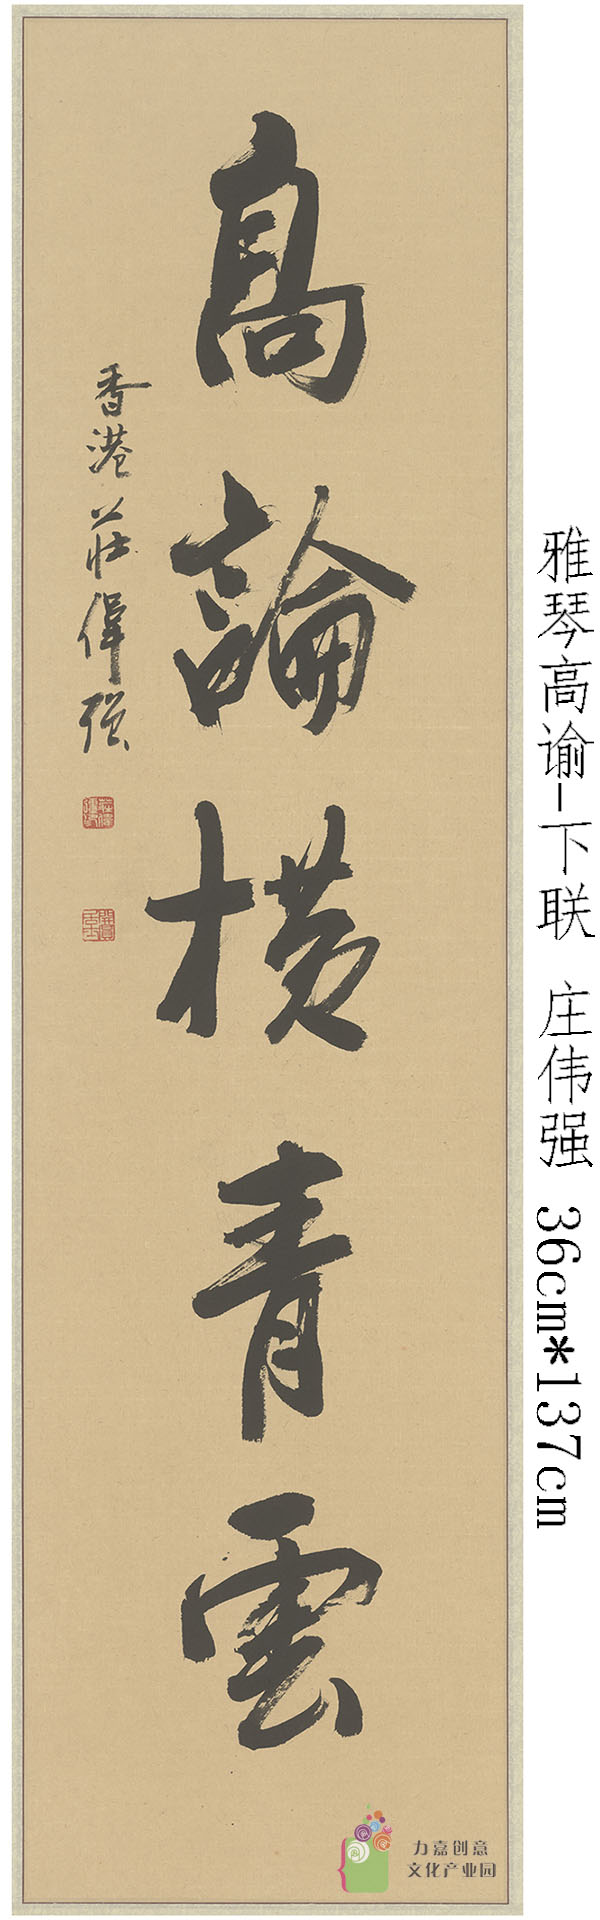 高論横青雲
香港莊偉强
雅琴高谕-下联 庄伟强 36cm*137cm
力嘉创意
文化产业园